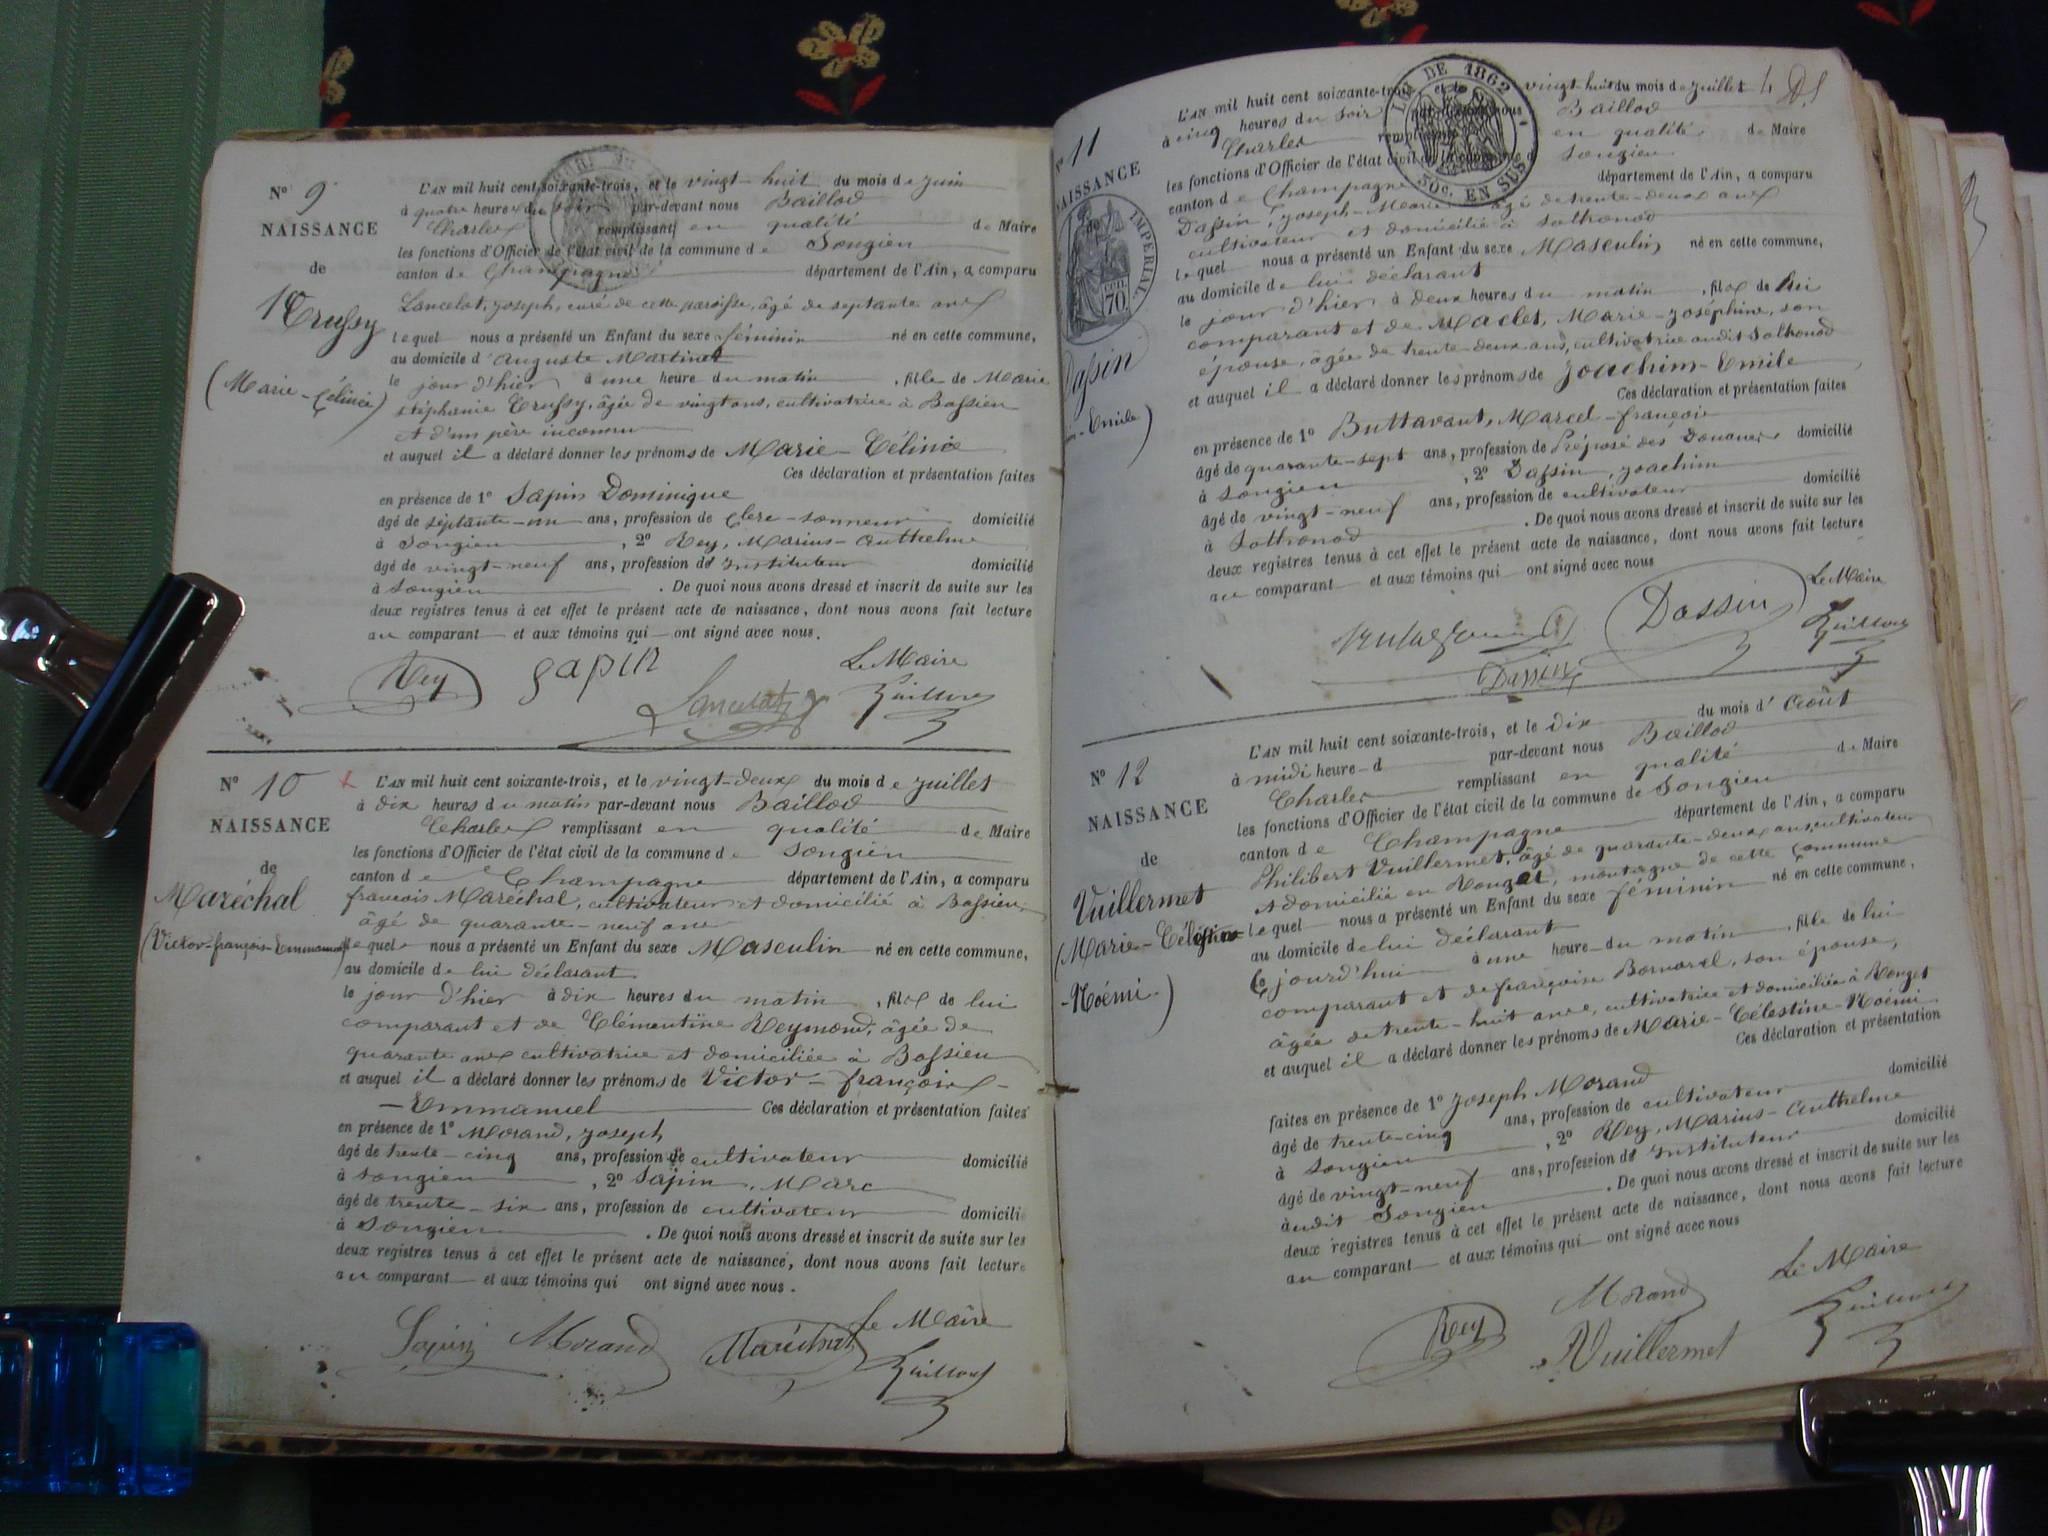 N° 9
NAISSANCE
de
Trussy
(Marie-Célinie)
L'AN mil huit cent soixante-trois, et le vingt-huit du mois de juin
à quatre heures du soir par-devant nous Baillod
Charles remplissant en qualité de Maire
les fonctions d'Officier de l'état civil de la commune de Songieu
canton de Champagne département de l'Ain, a comparu
Lancelot, joseph, curé de cette paroisse, âgé de septante ans
lequel nous a présenté un Enfant du sexe féminin né en cette commune,
au domicile d'Auguste Martinet
le jour d'hier à une heure du matin, fille de Marie
stéphanie Trussy, âgée de vingt ans, cultivatrice à Bassieu
et d'un père inconnu
et auquel il a déclaré donner les prénoms de Marie-Célinie
Ces déclaration et présentation faites
en présence de 1° Sapin Dominique
âgé de septante-un ans, profession de clerc-sonneur domicilié
à Songieu, 2° Rey, Marius-Anthelme
âgé de vingt-neuf ans, profession d'Instituteur domicilié
à Songieu. De quoi nous avons dressé et inscrit de suite sur les
deux registres tenus à cet effet le présent acte de naissance, dont nous avons fait lecture
au comparant et aux témoins qui ont signé avec nous.
Le Maire
Rey Sapin Lancelot Baillod
N° 10
NAISSANCE
de
Maréchal
(Victor-françois-Emmanuel)
L'AN mil huit cent soixante-trois, et le vingt-deux du mois de juillet
à dix heures du matin par-devant nous Baillod
Charles remplissant en qualité de Maire
les fonctions d'Officier de l'état civil de la commune de Songieu
canton de Champagne département de l'Ain, a comparu
françois Maréchal, cultivateur et domicilié à Bassieu,
âgé de quarante-neuf ans
lequel nous a présenté un Enfant du sexe Masculin né en cette commune,
au domicile de lui déclarant
le jour d'hier à dix heures du matin, fils de lui
comparant et de Clémentine Reymond, âgée de
quarante ans cultivatrice et domiciliée à Bassieu
et auquel il a déclaré donner les prénoms de Victor-françois-
-Emmanuel Ces déclaration et présentation faites
en présence de 1° Morand, joseph
âgé de trente-cinq ans, profession de cultivateur domicilié
à Songieu, 2° Sapin, Marc
âgé de trente-six ans, profession de cultivateur domicilié
à Songieu. De quoi nous avons dressé et inscrit de suite sur les
deux registres tenus à cet effet le présent acte de naissance, dont nous avons fait lecture
au comparant et aux témoins qui ont signé avec nous.
Le Maire
Sapin Morand Maréchal Baillod
N° 11
NAISSANCE
de
IMPERIAL
CENT. 70
Dassin
-Emile)
LOI DE 1862
50c. EN SUS
L'AN mil huit cent soixante-trois et le vingt huit du mois de juillet
à cinq heures du soir par-devant nous Baillod
Charles remplissant en qualité de Maire
les fonctions d'Officier de l'état civil de la commune de Songieu
canton de Champagne département de l'Ain, a comparu
Dassin, joseph-Marie âgé de trente-deux ans
cultivateur et domicilié à Sothonod
lequel nous a présenté un Enfant du sexe Masculin, né en cette commune,
au domicile de lui déclarant
le jour d'hier à deux heures du matin, fils de lui
comparant et de Maclet, Marie-joséphine, son
épouse, âgée de trente-deux ans, cultivatrice audit Sothonod
et auquel il a déclaré donner les prénoms de joachim-Emile
Ces déclaration et présentation faites
en présence de 1° Buttavant, Marcel-françois
âgé de quarante-sept ans, profession de Préposé des Douanes domicilié
à Songieu, 2° Dassin, joachim
âgé de vingt-neuf ans, profession de cultivateur domicilié
à Sothonod. De quoi nous avons dressé et inscrit de suite sur les
deux registres tenus à cet effet le présent acte de naissance, dont nous avons fait lecture
au comparant et aux témoins qui ont signé avec nous
Le Maire
Dassin Baillod
Dassin
N° 12
NAISSANCE
de
Vuillermet
(Marie-Célestine
-Noémi.)
L'AN mil huit cent soixante-trois, et le dix du mois d'Août
à midi heure d par-devant nous Baillod
Charles remplissant en qualité de Maire
les fonctions d'Officier de l'état civil de la commune de Songieu
canton de Champagne département de l'Ain, a comparu
Philibert Vuillermet, âgé de quarante-deux ans, cultivateur
et domicilié en Ronget, montagne de cette commune
lequel nous a présenté un Enfant du sexe féminin né en cette commune,
au domicile de lui déclarant
ce jourd'hui à une heure du matin, fille de lui
comparant et de françoise Bornarel, son épouse,
âgée de trente-huit ans, cultivatrice et domiciliée à Ronget
et auquel il a déclaré donner les prénoms de Marie-Célestine-Noémi
Ces déclaration et présentation
faites en présence de 1° joseph Morand
âgé de trente-cinq ans, profession de cultivateur domicilié
à Songieu, 2° Rey, Marius-Anthelme
âgé de vingt-neuf ans, profession d'Instituteur domicilié
audit Songieu. De quoi nous avons dressé et inscrit de suite sur les
deux registres tenus à cet effet le présent acte de naissance, dont nous avons fait lecture
au comparant et aux témoins qui ont signé avec nous
Le Maire
Rey Morand Baillod
Vuillermet